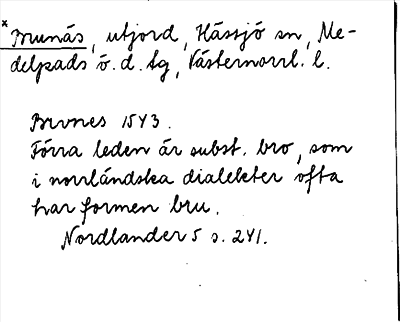 *Brunäs, utjord, Hässjö sn, Me-
delpads ö. d. tg, Västernorrl. l.
Brvnes 1543.
Förra leden är subst. bro, som
i norrländska dialekter ofta
har formen bru.
Nordlander 5 s. 241.